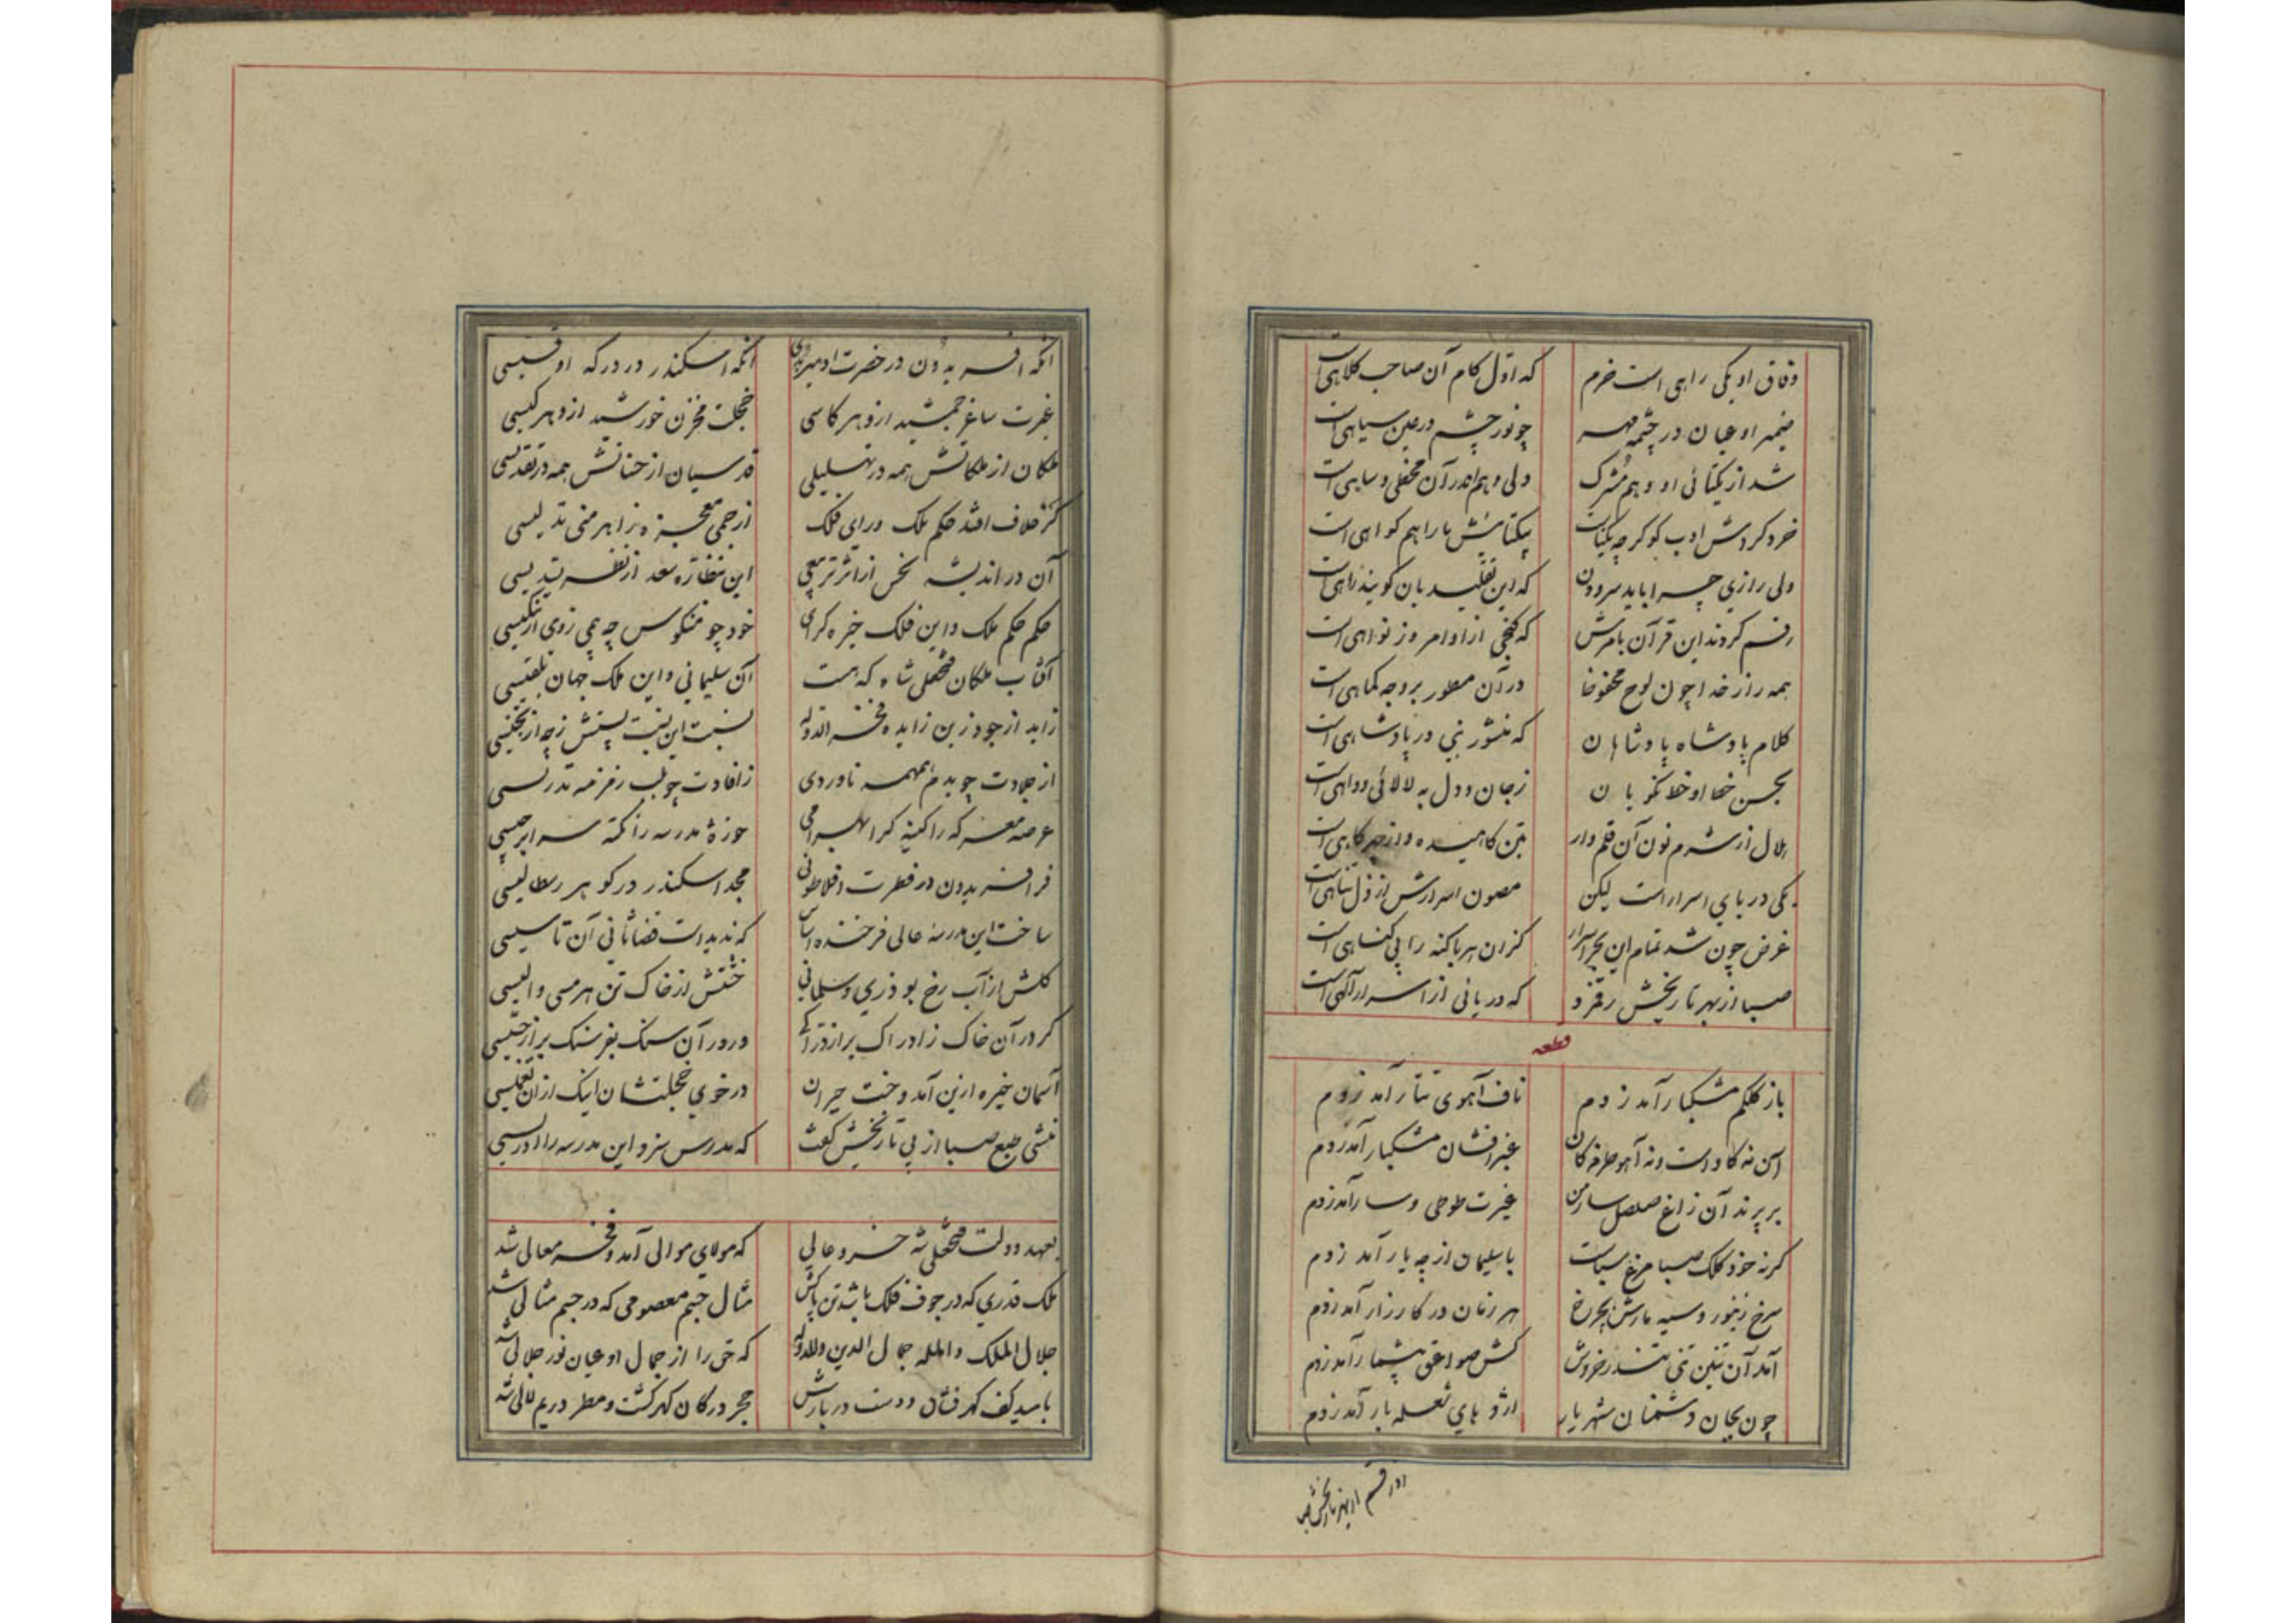 وفاق او یکی راهی است خرم که اول کام آن صاحب کلاهی است
ضمیر او عیان در چشمه مهر چو نور چشم در عین سیاهی است
شد از یکتائی او وهم مشرک ولی وهم اندر آن مخطی و ساهی است
خرد کردش ادب کو گرچه یکتاست بیکتائیش ما را هم کواهی است
ولی رازی چرا باید سرودن که این تقلیدیان کویند راهی است
رقم کردند این قرآن بامرش که کنجی از اوامر وز نواهی است
همه راز خدا چون لوح محفوظ در آن مسطور بر وجه کماهی است
کلام پادشاه پادشاهان که منشور نبی در پادشاهی است
بحسن خط او خط نکویان زجان و دل به لالائی و داهی است
هلال از شرم نون آن قلم وار بتن کاهیده و از چهر کاهی است
یکی دریای اسرار است لیکن مصون اسرارش از ذل تناهی است
غرض چون شد تمام این بحر اسرار کزان هر با کنه را بی کناهی است
صبا از بهر تاریخش رقم زد که دریائی از اسرار آلهی است
قطعه
باز کلکم مشکبار آمد زدم ناف آهوی تتار آمد زدم
آن نه کاو است و نه آهو طرفه کان عنبرافشان مشکبار آمد زدم
بر پرند آن زاغ صلصل سار من غیرت طوطی و سار آمد زدم
کرنه خود کلک صبا مرغ سباست با سلیمان از چه یار آمد زدم
سرخ زنبور و سیه مارش بچرخ هر زمان در کارزار آمد زدم
آمد آن تنین تنی تندر خروش کش صواعق بیشمار آمد زدم
چون بجان دشمنان شهریار اژدهای شعله بار آمد زدم
آنکه افریدون در حضرت او آنکه اسکندر در درکه او
غیرت ساغر جمشید ازو هر کاسی خجلت مخزن خورشید ازو هر کیسی
ملکان از ملکاتش همه در تهلیلی قدسیان از همه در تقدیسی
کز خلاف افتد حکم ملک و رای فلک از جمی معجزه وز اهرمنی تدلیسی
آن در اندیشه نحس از اثر تربیعی این بنظاره سعد از نظر تسدیسی
حکم حکم ملک و این فلک خیره کرای خود چو منکوس چه غمی زوی ار تنکیسی
آفتاب ملکان فتحعلی شاه که هست آن سلیمانی و این ملک جهان بلقیسی
زاید از جود زبن زایده فخرالدوله نسبت این
از جلادت چو بدم همهمه ناوردی ز افادت چو بلب زمزمه تدریسی
عرصه معرکه را کینه کرا بهرامی حوزه مدرسه را نکته سرا برجیسی
فر افریدون در فطرت افلاطونی مجد اسکندر در کوهر رسطالیسی
ساخت این مدرسه عالی فرخنده اساس که ندیداست قضا ثانی آن تاسیسی
کلش از آب رخ بوذری و سلمانی خشتش از خاک تن هرمسی و الیسی
کر در آن خاک ز ادراک در آن سنک بفرسنک
آسمان خیره ازین آمد و حیران در خوی خجلتشان اینک از آن
منشی طبع صبا از پی تاریخش کفت که مدرس سزد این مدرسه را ادریسی
بعهد دولت فتحعلی شه خسرو عالی که مولای موالی آمد و فخر معالی شد
ملک قدری که در جوف فلک باشد تن پاکش مثال جسم معصومی که در جسم مثالی شد
جلال الملک والمله جمال الدین والدوله که حق را از جمال او عیان نور جلالی شد
بامید کف کهرفشان و دست دربارش حجر در کان کهر کشت و مطر در یم لالی شد
از بهر تاریخش